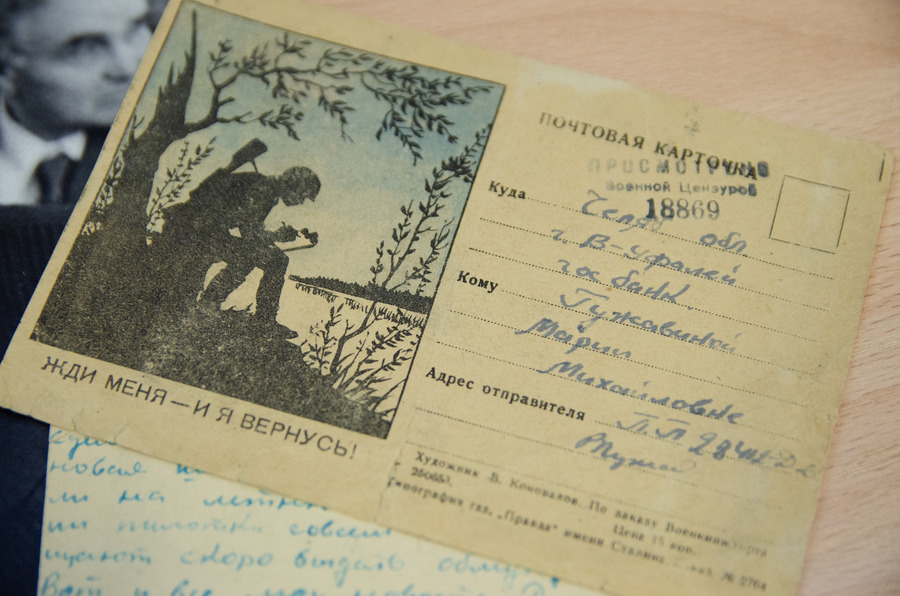 ЖДИ МЕНЯ — И Я ВЕРНУСЬ!
ПОЧТОВАЯ КАРТОЧКА
ПРОСМОТРЕНО
Военной Цензурой
18869
Куда
Челяб обл.
г. В-Уфалей
гос банк
Кому
Пужавиной
Марии
Михайловне
Адрес отправителя
П.П.
Художник В. Коновалов. По заказу Военкинжторга
Цена 15 коп.
Типография газ. „Правда" имени Сталина
№ 2764
новые
ли на летн
ии пилотки совсем
щают скоро выдать обму
Вот и все